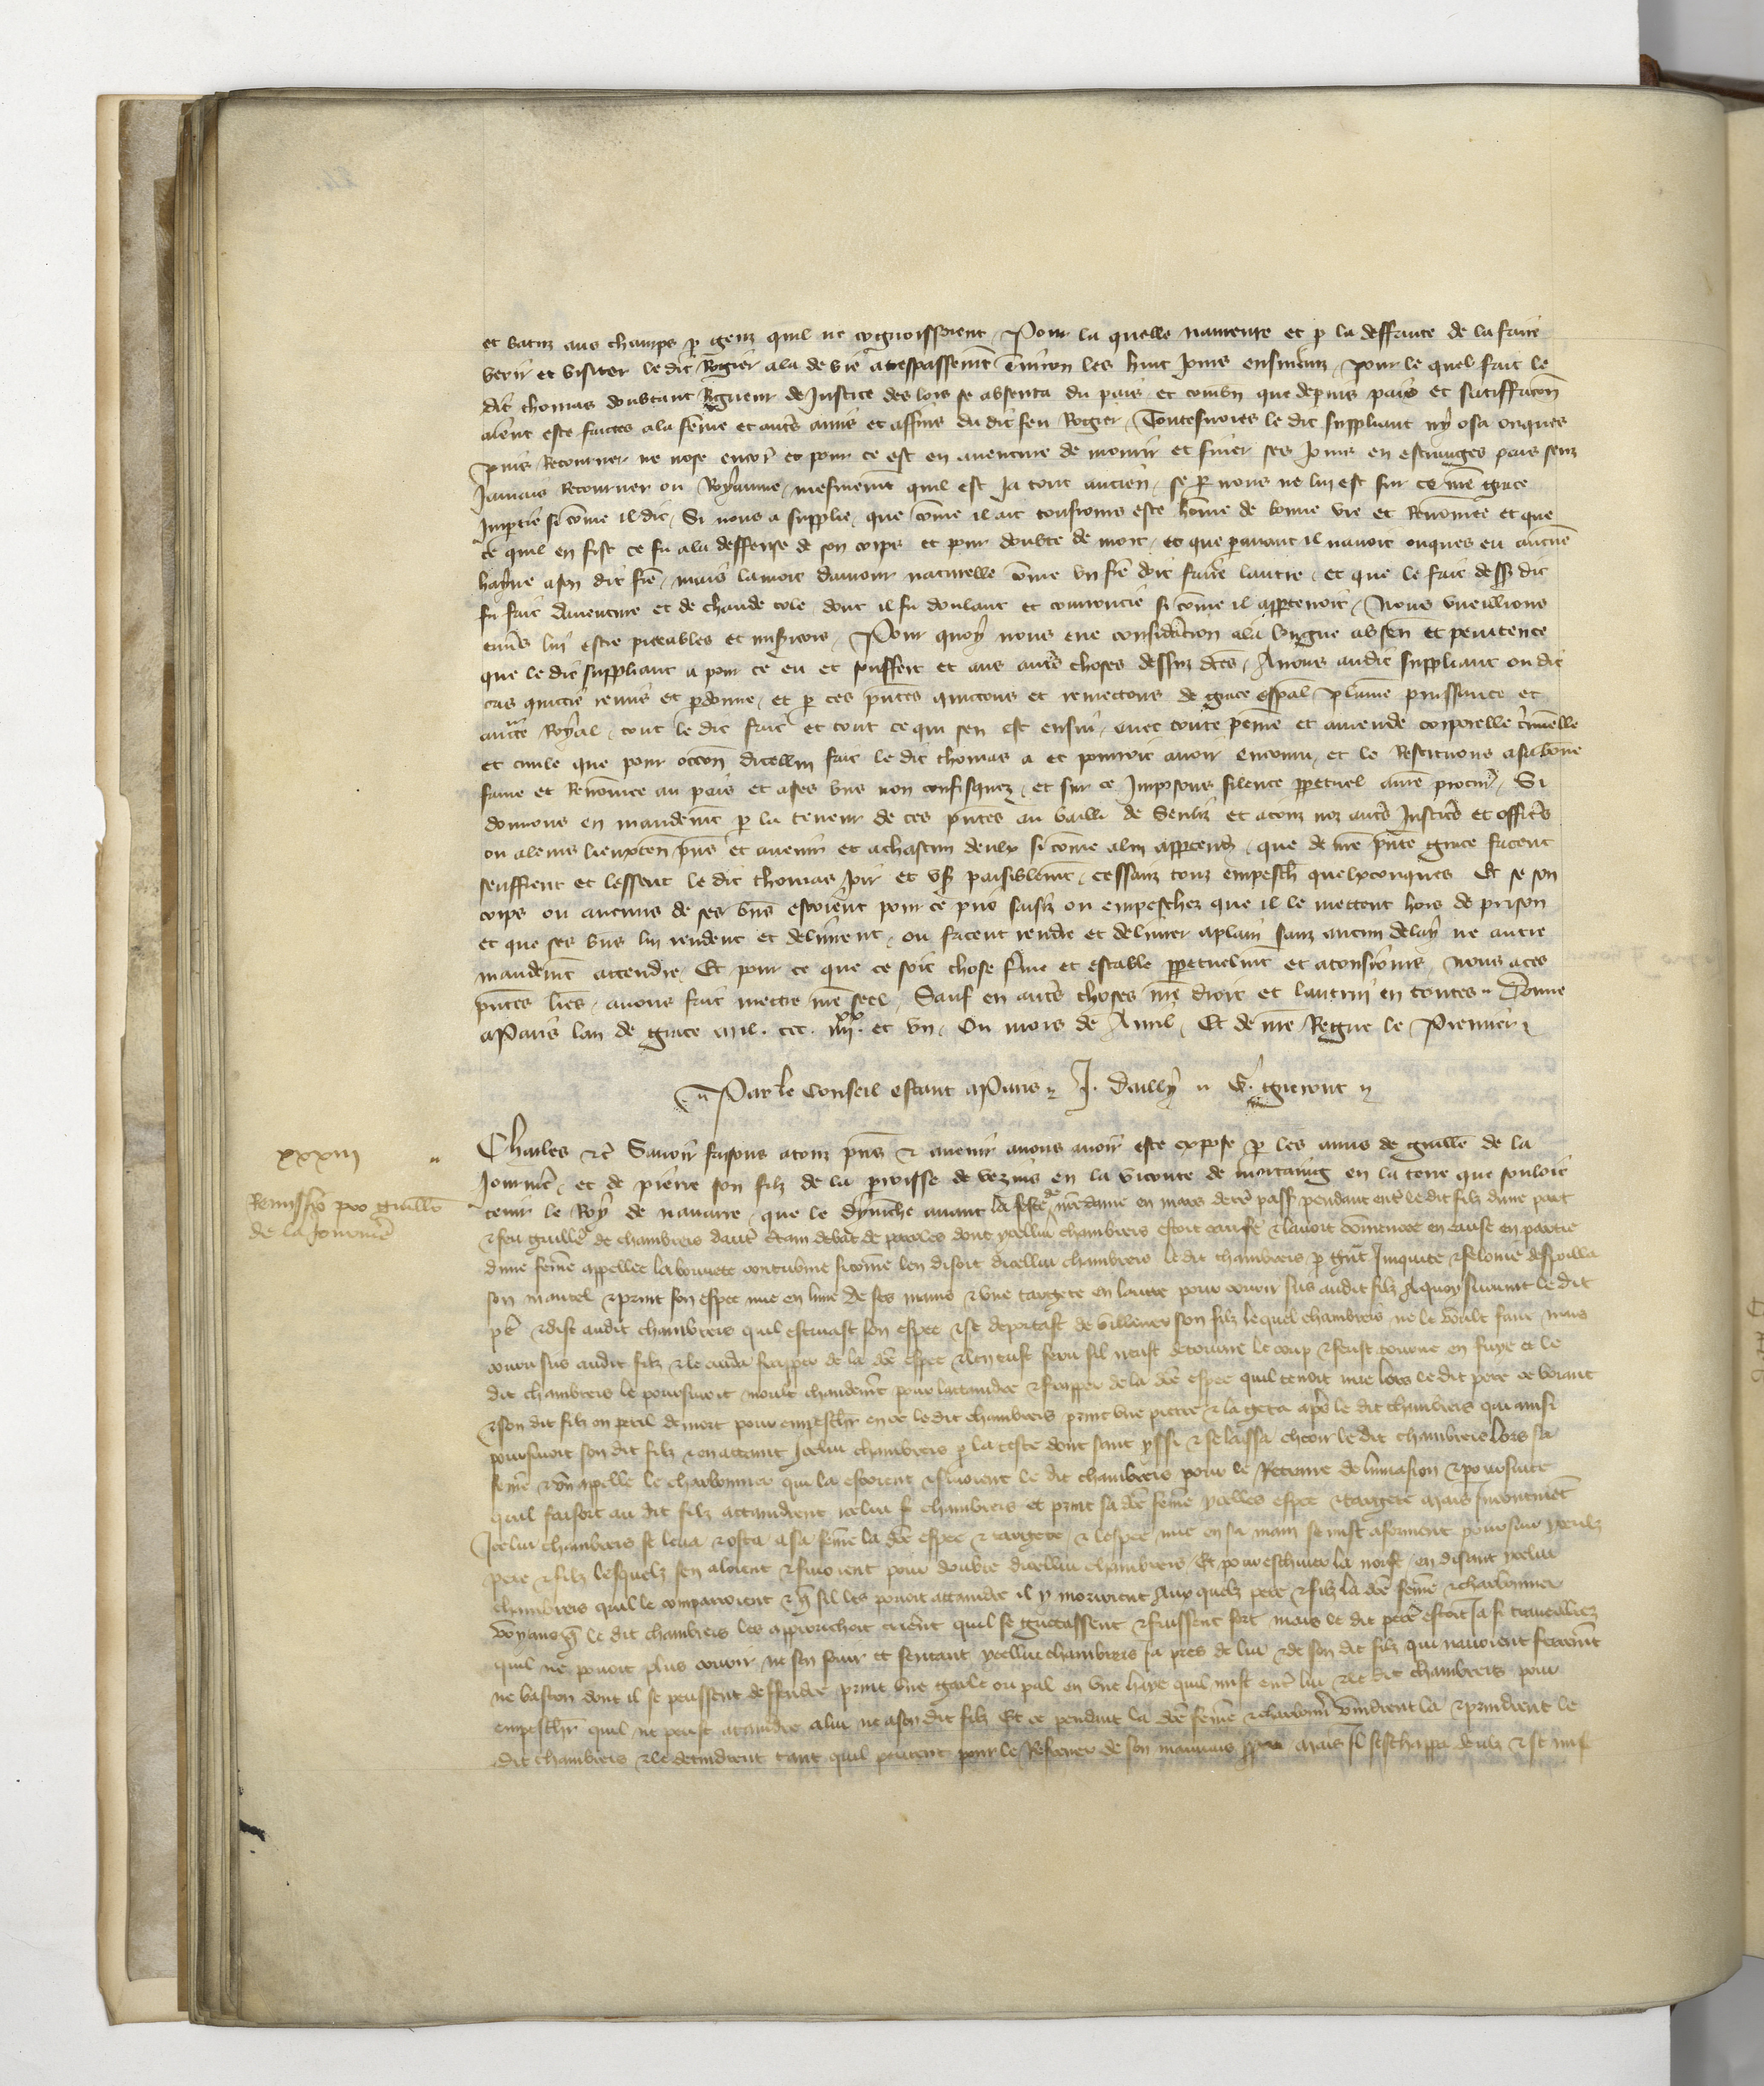 et batuz aus champs p genz quil ne cognoissoient Pour la quelle nameure et p la deffaute de la faire
veoir et visiter le dit Rogier ala de vie a trespassemt environ les huit jours ensuianz pour le quel fait le
dit thomas doubtant Rigueur de Justice des lors se absenta du pais et combn que depuis paix et satiffacon
aient este faittes ala feme et autres amis et affins du dit feu Rogier Toutesvoies le dit suppliant ny osa onques
puis Retourner ne nose encor et pour ce est en aventure de mourir et finer ses jours en estranges pais senz
Jamais Retourner ou Royaume mesmemt quil est ja tout ancien se p nous ne lui est sur ce nre grace
Impartie si come il dit Si nous a supplie que come il ait tousjours este home de bonne vie et Renomee et que
ce quil en fist ce fu ala deffense de son corps et pour doubte de mort et que paravant il navoit onques eu aucune
hayne a son dit fre mais lamoit damour naturelle come un fre doit faire lautre et que le fait dessus dit
fu fait daventure et de chaude cole dont il fu doulant et courroucie si come il appartenoit Nous vueillions
envs lui estre piteables et misicors Pour quoy nous eue consideracion ala longue absen et penitence
que le dit suppliant a pour ce eu et souffert et aus autres choses dessuz dces Avons audit suppliant ou dit
cas quittie remis et pdonne et p ces pntes quittons et remettons de grace espal plaine puissance et
auctte Royal tout le dit fait et tout ce qui sen est ensui avec toute peine et amende corporelle criminelle
et civile que pour occon dicellui fait le dit thomas a et pourroit avoir encouru et le Restituons asabone
fame et Renomee au pais et a ses biens non confisquez et sur ce Imposons silence ppetuel anre procur Si
donnons en mandemt p la teneur de ces pntes au bailli de Senliz et atouz noz autres Justiciers et officiers
ou aleurs lieuxten pns et avenir et achascun deulx si come alui appartendra que de nre pnte grace facent
seuffrent et lessent le dit thomas joir et user paisiblemt cessanz touz empesch quelxconques Et se son
corps ou aucuns de ses bns estoient pour ce pris saisiz ou empeschez que il le mettent hors de prison
et que ses bns lui rendent et delivrent ou facent rendre et delivrer aplain sanz aucun delay ne autre
mandemt attendre Et pour ce que ce soit chose ferme et estable ppetuelmt et atousjours Nous aces
pntes lres avons fait mettre nre seel Sauf en autres choses nre droit et lautrui en toutes Donne
aParis lan de grace mil ccc iiijxx et un Ou mois de Avril Et de nre Regne le Premier
Par le Conseil estant aParis J. dailly G. guerout
xxxiij
Charles etc Savoir faisons atouz pns et avenir anous avoir este expose p les amis de guille de la
Journee et de pierre son filz de la proisse de vezins en la viconte de mortaing en la terre que souloit
Remissio pro guillo
de la Journee
tenir le Roy de navarre que le dymenche avant la feste de nre dame en mars derre passe pendant entre le dit filz dune part
et feu guille de chambreis dautre certain debat de paroles dont ycellui chambreis estoit cause et lavoit commence en cause en partie
dune feme appellee la bonnete concubine sicome len disoit dicellui chambreis le dit chambreis p grant Iniquite et felonie despoilla
son mantel et print son espee nue en lune de ses mains et une targete en lautre pour courir sus audit filz Aquoy survint le dit
pere et dist audit chambreis quil estuiast son espee et se deportast de villener son filz le quel chambreis ne le voult faire mais
couru sus audit filz et le cuida frapper de la dce espee et len eust feru sil neust destourne le coup et feust tourne en fuye et le
dit chambreis le poursuivit moult chaudemt pour lattaindre et frapper de la dce espee quil tenoit nue lors le dit pere ce voiant
et son dit filz en peril de mort pour empescher en ce le dit chambreis print une pierre et la geta apres le dit chambreis qui ainsi
poursuivoit son dit filz et en attaint Icelui chambreis p la teste dont sanc yssi et se laissa cheoir le dit chambreis lors sa
feme et un apelle le charbonnier qui la estoient et suivoient le dit chambreis pour le Retraire de linvasion et poursuite
quil faisoit au dit filz attaindrent icelui chambreis et print sa dce feme ycelles espee et targete mais incontinent
Icelui chambreis se leva et osta asa feme la dce espee et targete et lespee nue en sa main se mist aforment poursuir yceulz
pere et filz lesquelz sen aloient et fuioient pour doubte dicellui chambreis Et pour eschiver la noise en disant ycelui
chambreis quil le comparroient et que sil les povoit attaindre il y mourroient Aux quelz pere et filz la dce feme et charbonnier
voyans que le dit chambreis les approuchoit crierent quil se guettassent et fuissent fort mais le dit pere estoit ja si travailliez
quil ne povoit plus courir ne sen fuir et sentant ycellui chambreis ja pres de lui et de son dit filz qui navoient ferremt
ne baston dont il se peussent deffendre print une gaule ou pal en une haye quil mist entre lui et le dit chambreis pour
empescher quil ne peust ataindre alui ne ason dit filz Et ce pendant la dce feme et charbonnier vindrent la et prindrent le
dit chambreis et le detindrent tant quil porent pour le Refrener de son mauvais mais Il seschappa deulz et se mist